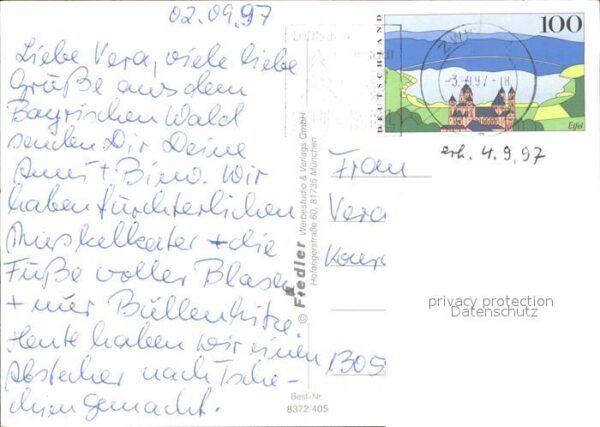 02.09.97
Liebe Vera, viele liebe
Grüße aus dem
Bayrischen Wald
senden Dir Deine
Anni + Bino. Wir
haben fürchterlichen
Muskelkater + die
Füße voller Blasen
+ nur Bullenhitze.
Heute haben wir einen
Abstecher nach Tsche-
chien gemacht.
© Fiedler Werbestudio & Verlags GmbH
Hofangerstraße 60, 81735 München
Best.-Nr.
8372/405
DEUTSCHLAND
100
Eifel
-3.-9.97-18
erh. 4.9.97
Frau
Vera
1305
privacy protection
Datenschutz